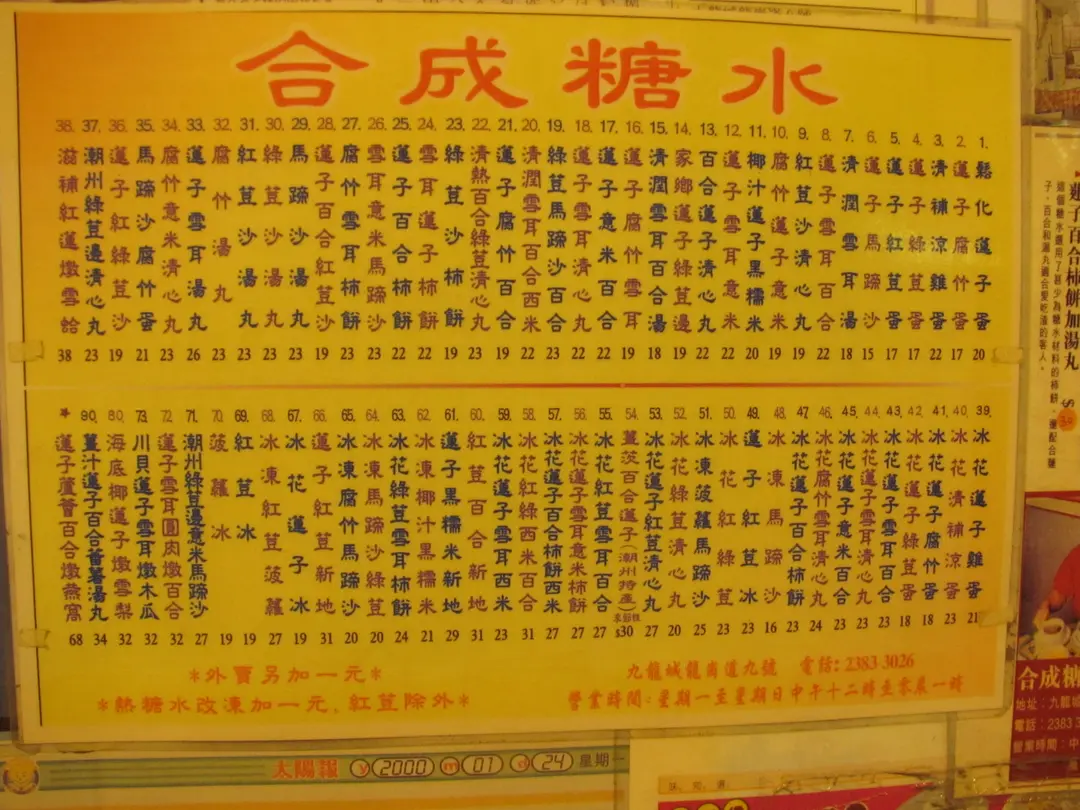 合成糖水
1. 鬆化蓮子蛋 20
2. 蓮子腐竹蛋 17
3. 清補涼雞蛋 22
4. 蓮子綠荳蛋 17
5. 蓮子紅荳蛋 17
6. 蓮子馬蹄沙 15
7. 清潤雪耳湯 18
8. 蓮子雪耳百合 22
9. 紅荳沙清心丸 19
10. 腐竹蓮子意米 22
11. 椰汁蓮子黑糯米 20
12. 蓮子雪耳意米 22
13. 百合蓮子清心丸 22
14. 家鄉蓮子綠荳邊 19
15. 清潤雪耳百合湯 18
16. 蓮子腐竹雪耳 19
17. 蓮子意米百合 22
18. 蓮子雪耳清心丸 22
19. 綠荳馬蹄沙百合 23
20. 清潤雪耳百合西米
21. 蓮子腐竹百合 22
22. 清熱百合綠荳清心丸
23. 綠荳沙柿餅 19
24. 雪耳蓮子柿餅 22
25. 蓮子百合柿餅 22
26. 雪耳意米馬蹄沙 23
27. 腐竹雪耳柿餅 23
28. 蓮子百合紅荳沙 19
29. 馬蹄沙湯丸 23
30. 綠荳沙湯丸 23
31. 紅荳沙湯丸 23
32. 腐竹湯丸 23
33. 蓮子雪耳湯丸 26
34. 腐竹意米清心丸 23
35. 馬蹄沙腐竹蛋 21
36. 蓮子紅綠荳沙 19
37. 潮州綠荳邊清心丸 23
38. 滋補紅蓮燉雪蛤 38
39. 冰花蓮子雞蛋 21
40. 冰花清補涼蛋 23
41. 冰花蓮子腐竹蛋 18
42. 冰花蓮子綠荳蛋 18
43. 冰花蓮子雪耳百合 23
44. 冰花蓮子雪耳清心丸 24
45. 冰花蓮子意米百合 23
46. 冰花腐竹雪耳清心丸 24
47. 冰花蓮子百合柿餅 23
48. 冰凍馬蹄沙 16
49. 蓮子紅荳冰 23
50. 冰花紅綠荳 23
51. 冰凍菠蘿馬蹄沙 25
52. 冰花綠荳清心丸 20
53. 冰花蓮子紅荳清心丸 27
54. 薑茨百合蓮子(潮州特產) $30
55. 冰花紅荳雪耳百合 27
56. 冰花蓮子雪耳意米柿餅 27
57. 冰花蓮子百合柿餅西米 27
58. 冰花紅綠西米百合 31
59. 冰花蓮子雪耳西米 23
60. 紅荳百合新地 31
61. 蓮子黑糯米新地 29
62. 冰凍椰汁黑糯米 21
63. 冰花綠荳雪耳柿餅 24
64. 冰凍馬蹄沙綠荳 20
65. 冰凍腐竹馬蹄沙 20
66. 蓮子紅荳新地 31
67. 冰花蓮子冰 19
68. 冰凍紅荳菠蘿 27
69. 紅荳冰 19
70. 菠蘿冰 19
71. 潮州綠荳邊意米馬蹄沙 27
72. 蓮子雪耳圓肉燉百合 32
73. 川貝蓮子雪耳燉木瓜 32
80. 海底椰蓮子燉雪梨 32
90. 薑汁蓮子百合蕃薯湯丸 34
* 蓮子蘆薈百合燉燕窩 68
*外賣另加一元*
*熱糖水改凍加一元,紅荳除外*
九龍城龍崗道九號 電話:2383 3026
營業時間:星期一至星期日中午十二時至零晨一時
太陽報 y 2000 m 01 d 24 星期一
蓮子百合柿餅加湯丸
合成糖
地址:九龍城
電話:2383 3
營業時間:中